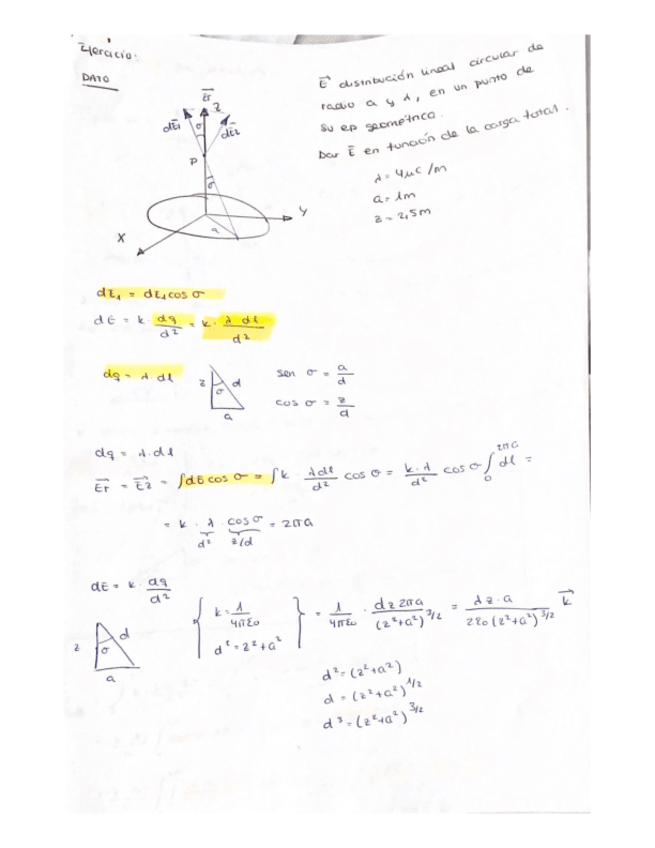 Ejercicio:
DATO
E⃗ distribución lineal circular de
radio a y λ, en un punto de
su eje geométrico.
Dar E⃗ en función de la carga total.
λ = 4μC/m
a = 1m
z = 2,5m
E⃗r
Z
dE⃗1
σ
dE⃗2
P
σ
Y
a
X
dE₁ = dE₁ cos σ
dE = k · dq/d² = k · λ dl/d²
dq = λ · dl
z d σ a
sen σ = a/d
cos σ = z/d
dq = λ · dl
E⃗r = E⃗z = ∫dE cos σ = ∫k · λdl/d² cos σ = k·λ/d² cos σ ∫₀^2πa dl =
= k · λ/d² · cos σ = 2πa
z/d
dE = k · dq/d²
z d σ a
{ k = 1/4πε₀
d² = z² + a² }
= 1/4πε₀ · λz 2πa/(z²+a²)^3/2 = λz·a/2ε₀(z²+a²)^3/2 k⃗
d² = (z²+a²)
d = (z²+a²)^1/2
d³ = (z²+a²)^3/2